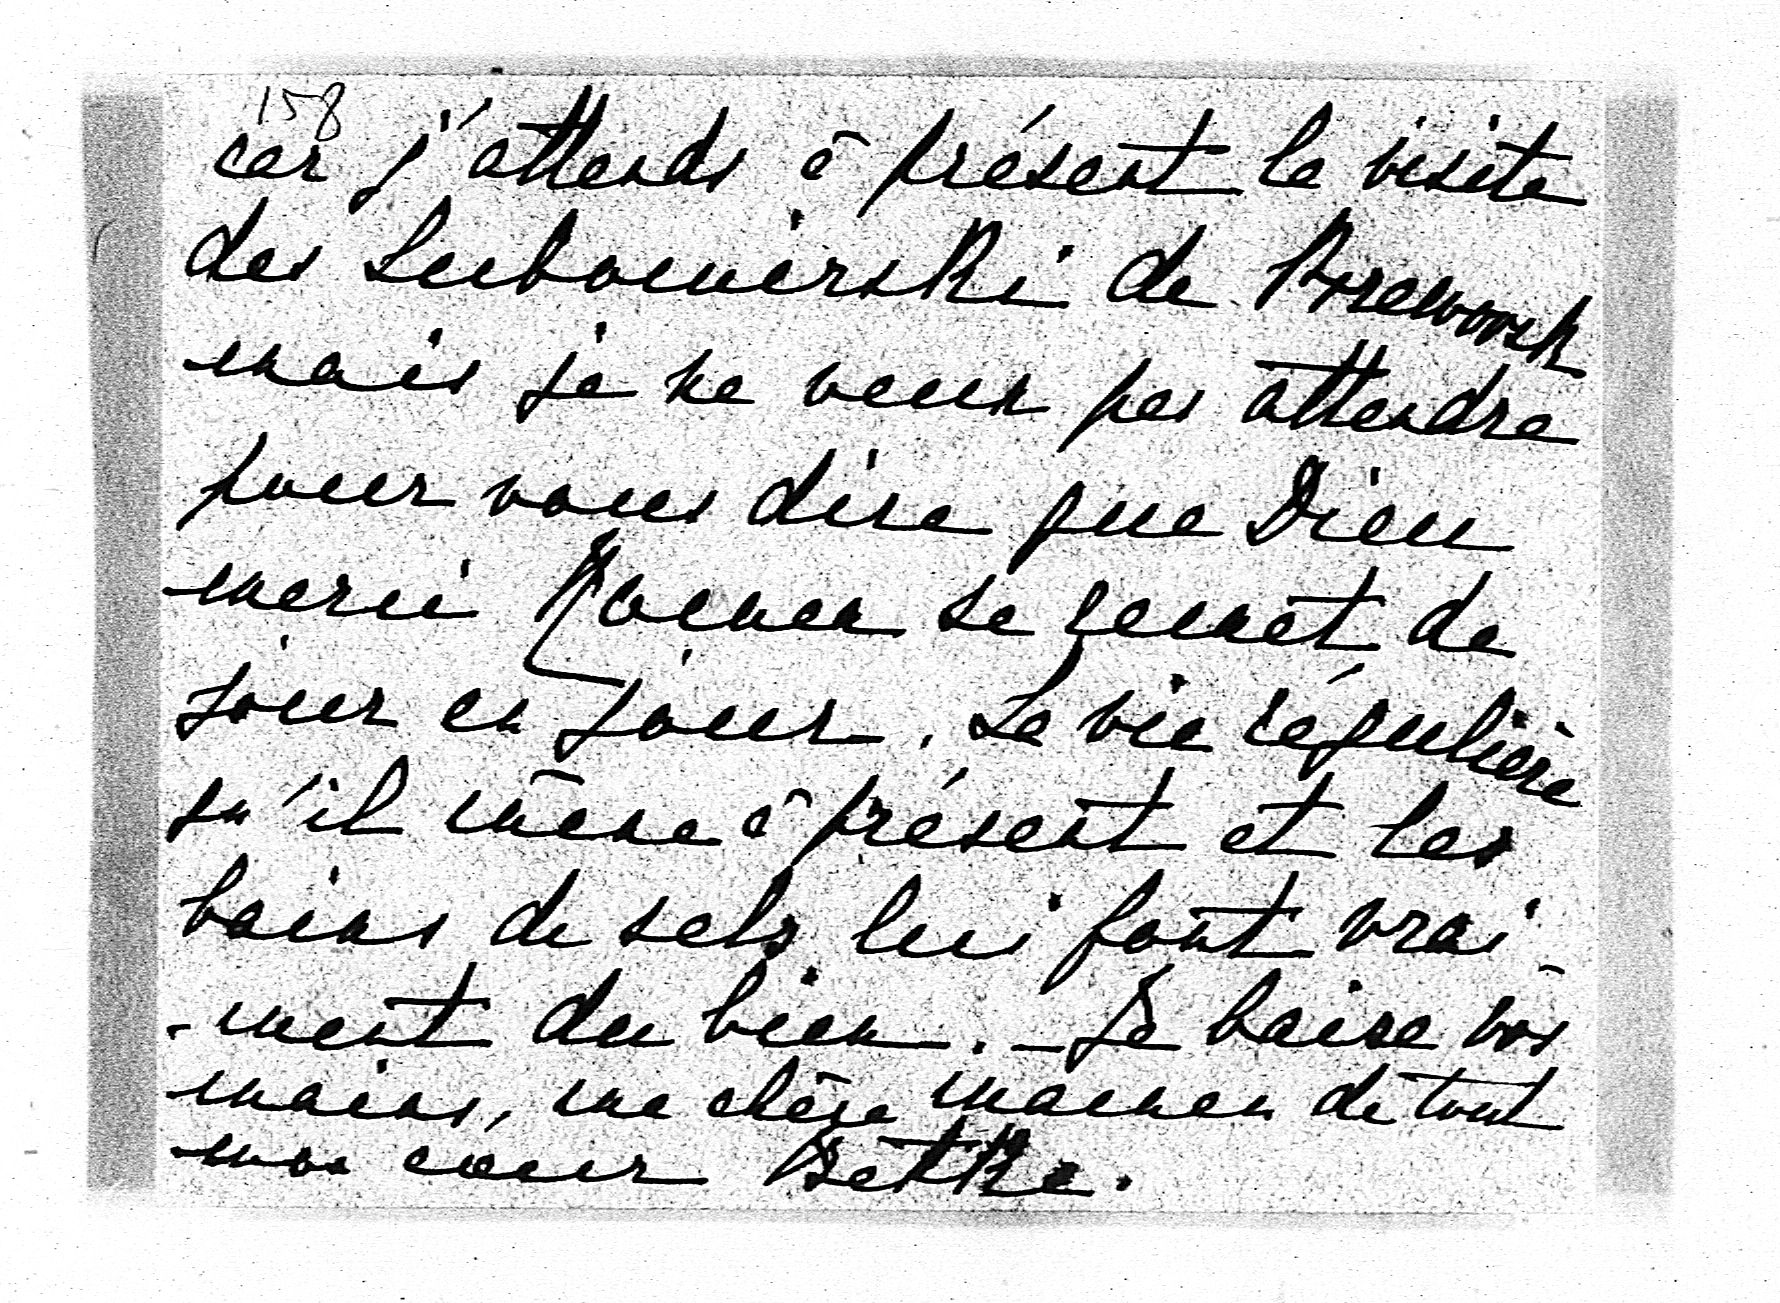 158
car j'attends à présent la visite
des Lubomirski de Przeworsk
mais je ne veux pas attendre
pour vous dire que Dieu
merci Roman se remet de
jour en jour. La vie régulière
qu'il mène à présent et les
bains de sels lui font vrai-
-ment du bien. - Je baise vos
mains, ma chère maman de tout
mon cœur Betka.